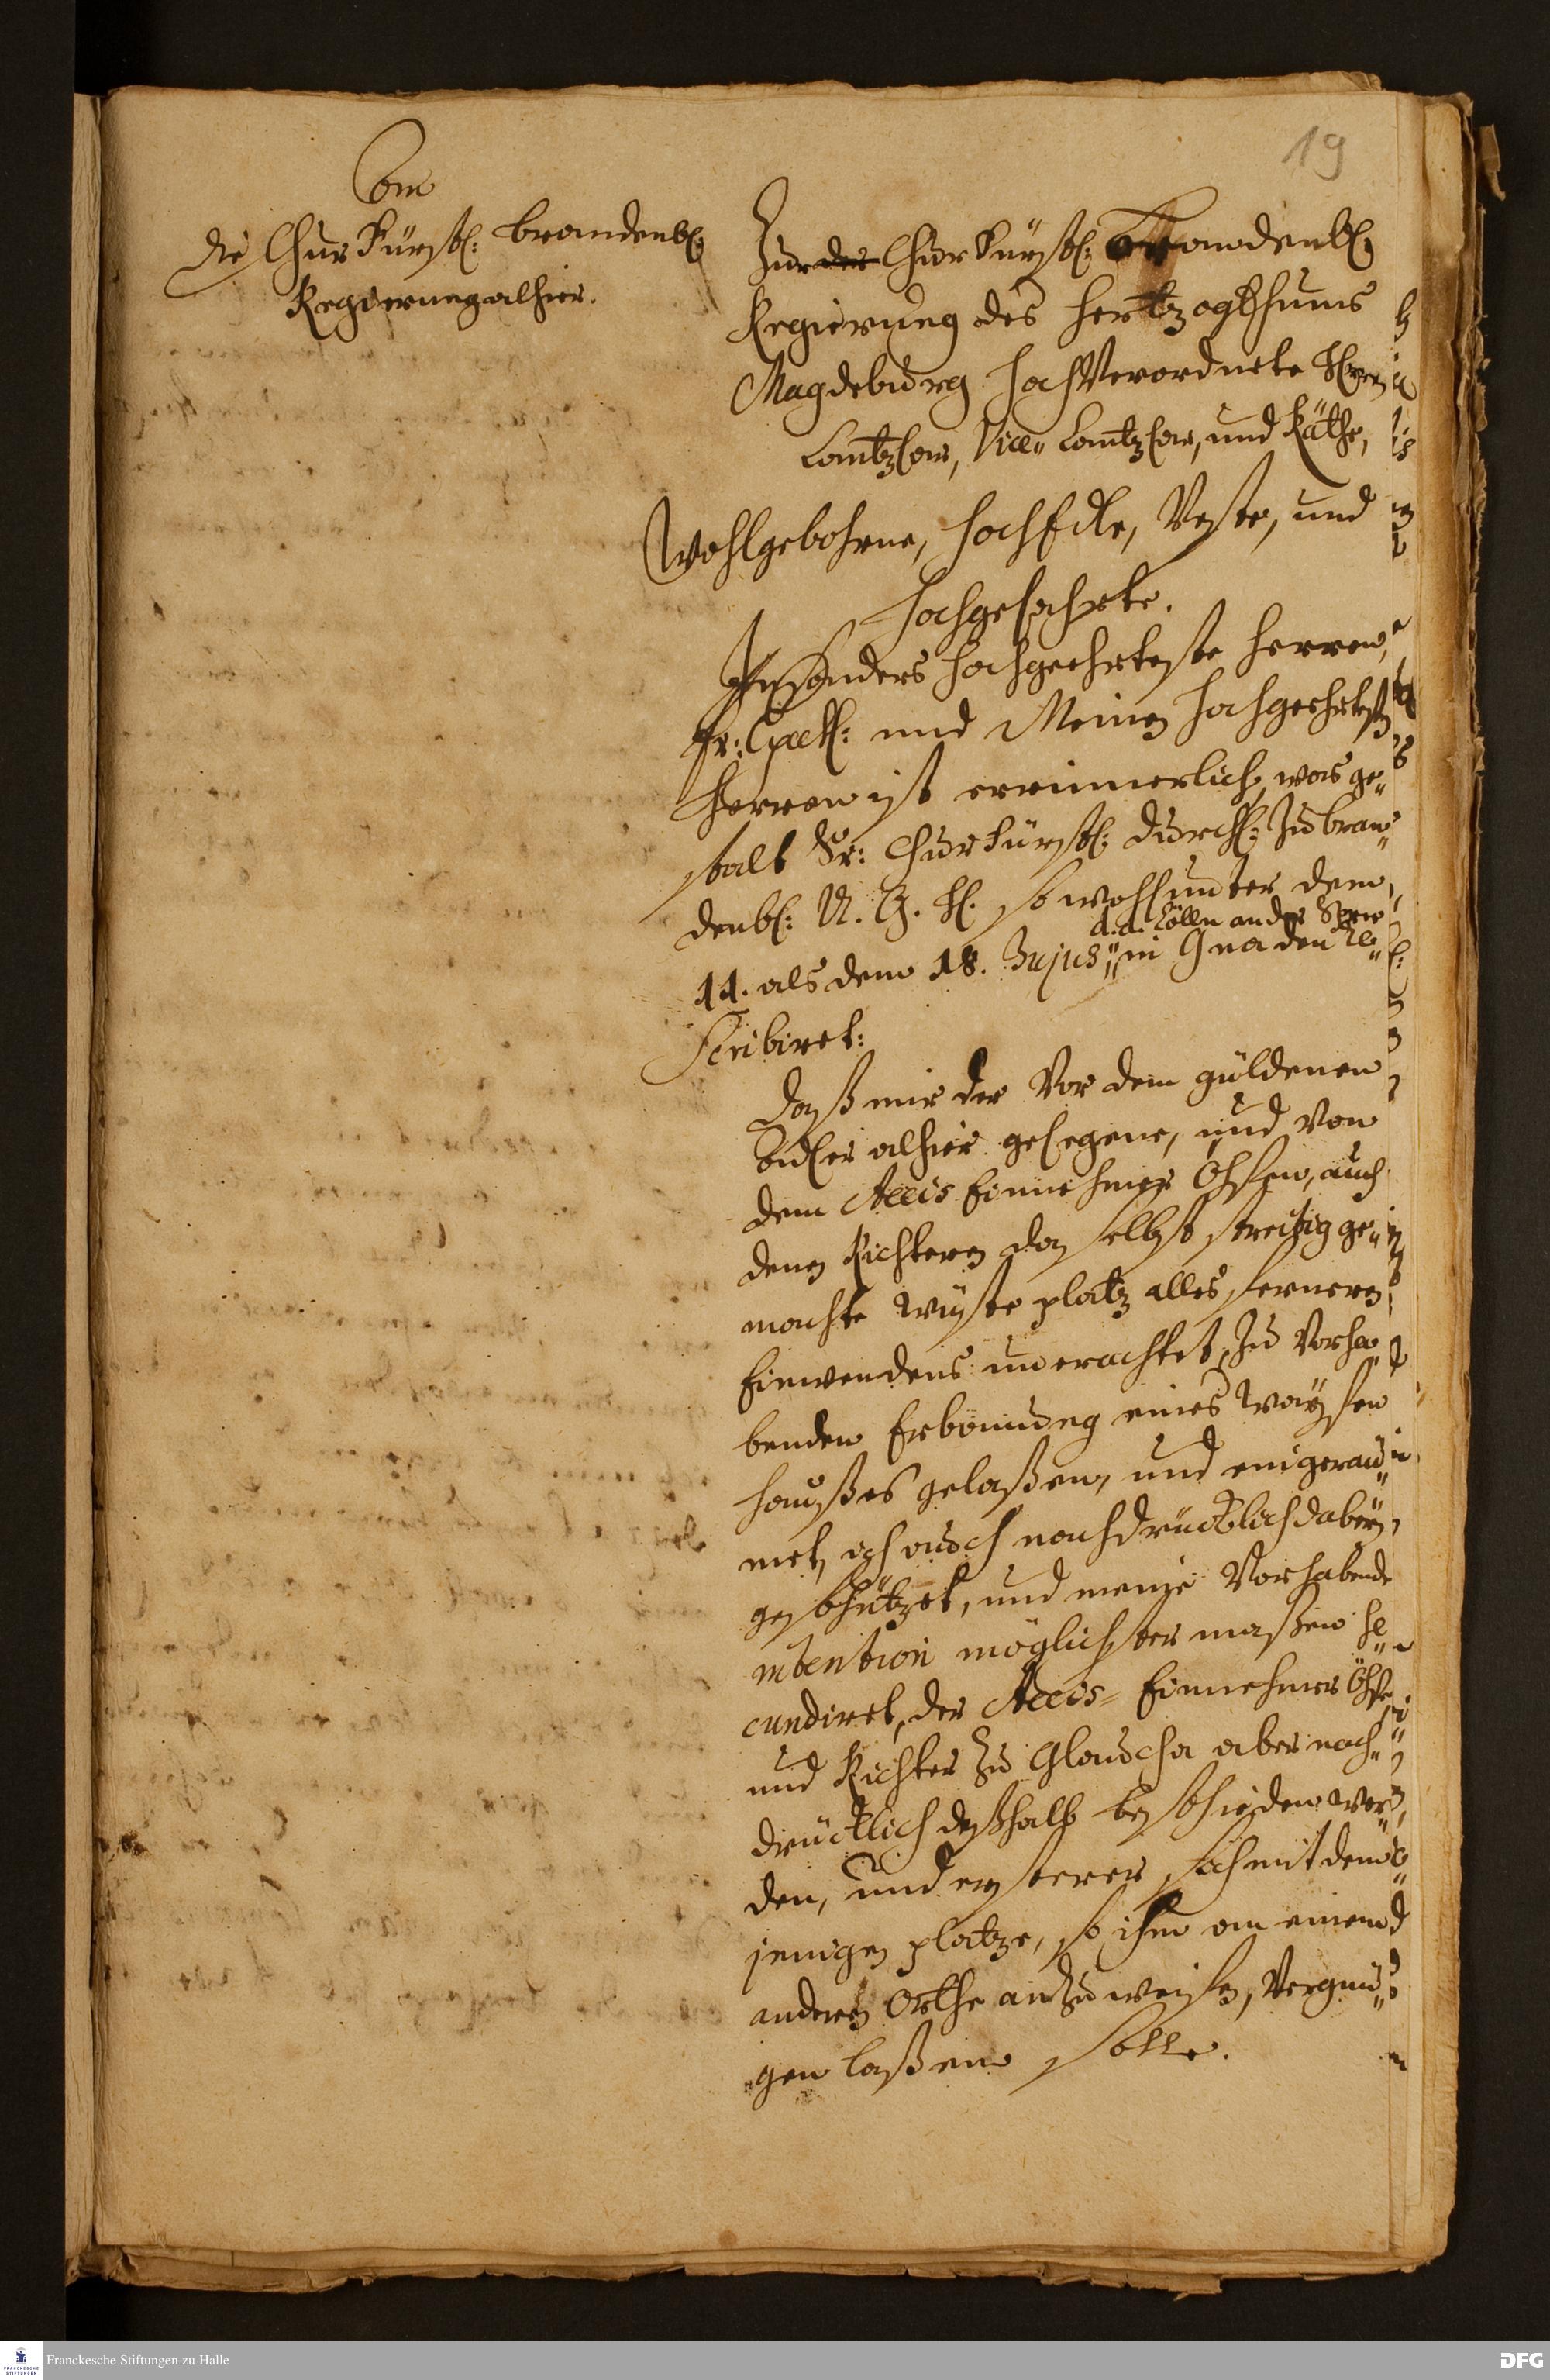 19
An
die ChurFürstl: Brandenbl:
Regierung alhier.
Zur der ChurFürstl: Brandenbl:
Regierung des Hertzogthums
Magdeburg HochVerordnete Herrn
Cantzlar, Vice„ Cantzlar, und Räthe,
Wohlgebohrne, HochEdle, Veste, und
Hochgelahrte.
Insonders Hochgeehrteste Herren,
Ew: Excell: und Meinen Hochgeehrtesten
Herren ist errinnerlich, was ge„
stalt Sr: ChurFürstl: Durchl: Zu Bran„
denbl: U. G. H. so wohl unter dem
d. d. Cölln an der Spree
11. als dem 18. Hujus, in Gnaden Re„
scribiret:
Daß mir der Vor dem güldenen
Adler alhier gelegene, und Von
dem Accis Einnehmer Ohsen, auch
denen Richtern daselbst streitig ge„
machte Wüste platz alles ferneren
Einwendens unerachtet, Zu Vorha„
benden Erbauung eines Waysen
haußes gelaßen, und eingeräu„
met, ich auch nachdrücklich dabey
geschützet, und meine Vorhabende
intention möglichster maßen se„
cundiret, der Accis- Einnehmer Ohse,
und Richter Zu Glaucha aber nach„
drücklich deßhalb beschieden wer„
den, und ersterer sich mit dem
jenigen platze, so ihm an einem
anderen Orthe anzuweisen, Vergnü„
gen laßen solle.
Franckesche Stiftungen zu Halle
FRANCKESCHE STIFTUNGEN
DFG